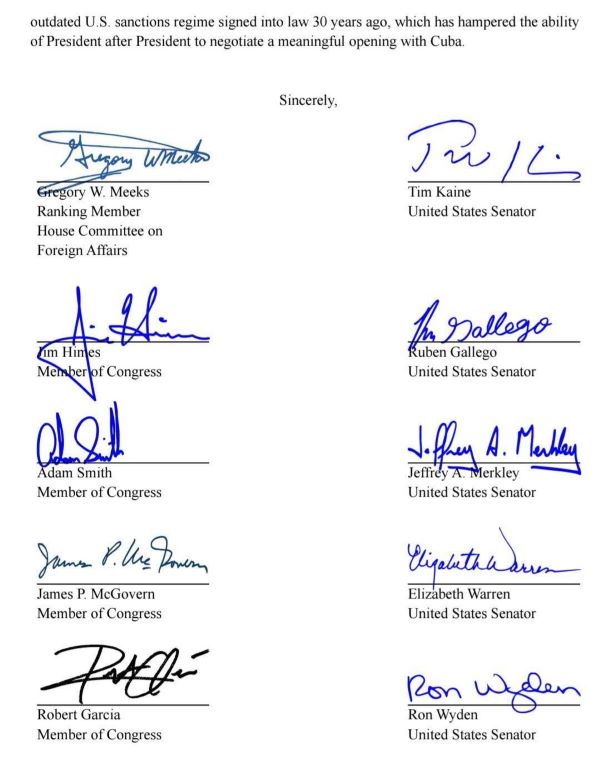 outdated U.S. sanctions regime signed into law 30 years ago, which has hampered the ability
of President after President to negotiate a meaningful opening with Cuba.
Sincerely,
Gregory W Meeks
Gregory W. Meeks
Ranking Member
House Committee on
Foreign Affairs
Tim Kaine
United States Senator
Jim Himes
Member of Congress
Gallego
Ruben Gallego
United States Senator
Adam Smith
Adam Smith
Member of Congress
Jeffrey A. Merkley
Jeffrey A. Merkley
United States Senator
James P. McGovern
James P. McGovern
Member of Congress
Elizabeth Warren
Elizabeth Warren
United States Senator
Robert Garcia
Member of Congress
Ron Wyden
Ron Wyden
United States Senator